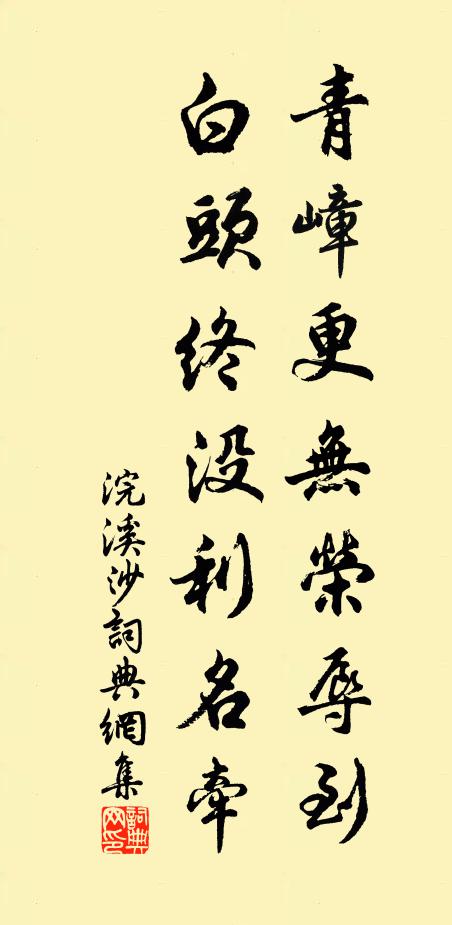 青嶂更無榮辱到
白頭終没利名牽
浣溪沙詞典網集
詞典網印